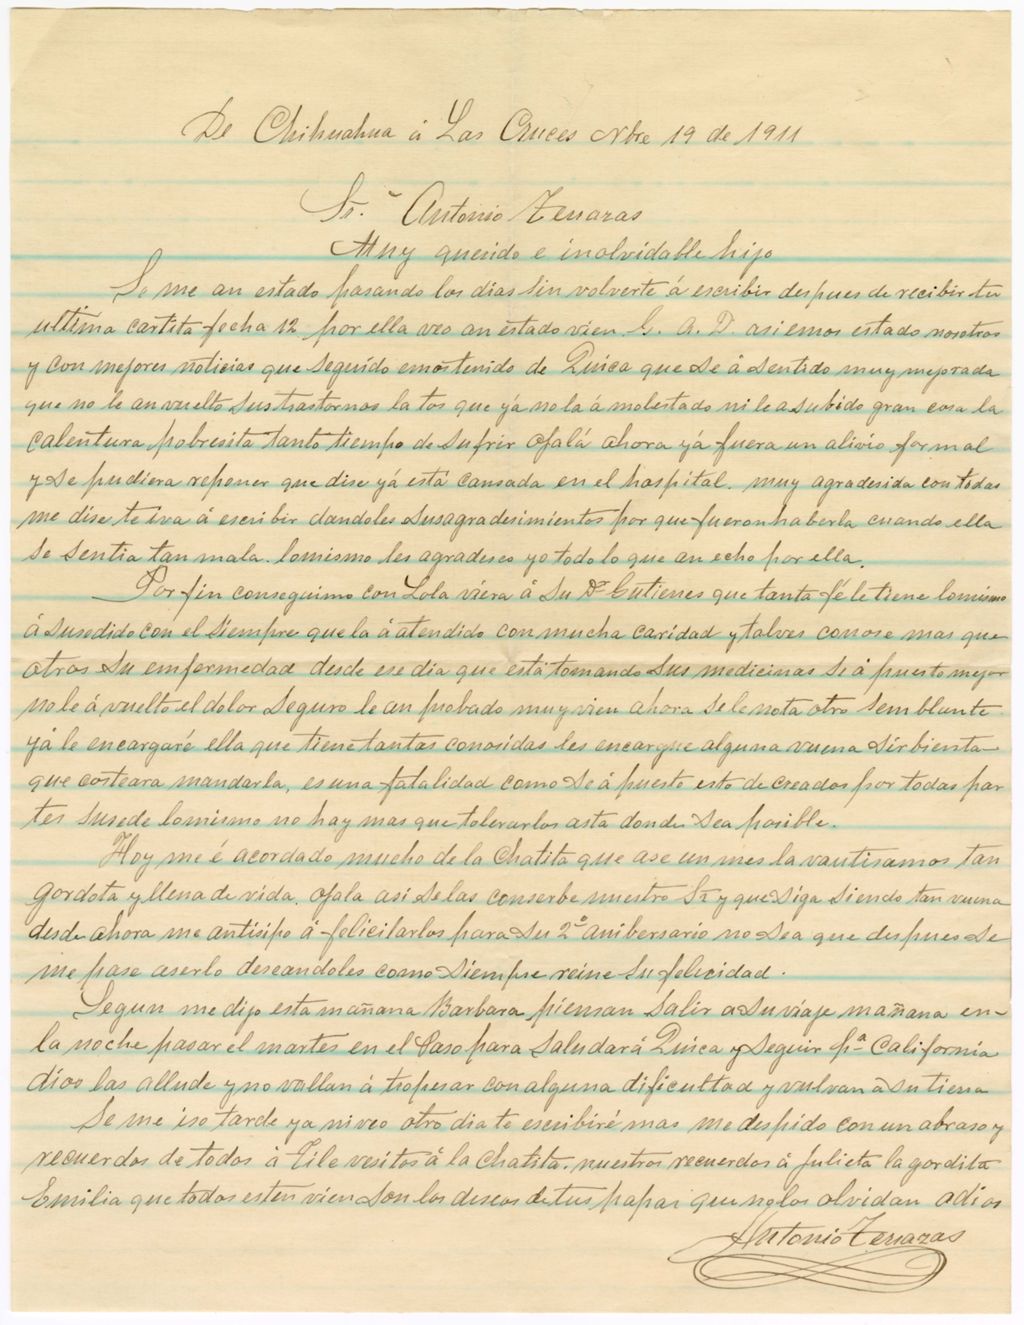 De Chihuahua á Las Cruces Nbre 19 de 1911
Sr. Antonio Terrazas
Muy querido e inolvidable hijo
Se me an estado pasando los dias sin volverte á escribir despues de recibir tu
ultima cartita fecha 12 por ella veo an estado vien G. A. D. asi emos estado nosotros
y con mejores noticias que seguido emos tenido de Quica que se á sentido muy mejorada
que no le an vuelto sus trastornos la tos que yá no la á molestado ni le a subido gran cosa la
calentura pobresita tanto tiempo de sufrir ojalá ahora yá fuera un alivio formal
y se pudiera reponer que dise yá está cansada en el hospital. muy agradesida con todas
me dise te iva á escribir dandoles sus agradesimientos por que fueron haberla cuando ella
se sentia tan mala. lo mismo les agradesco yo todo lo que an echo por ella.
Por fin conseguimo con Lola viera á su Dr Gutierres que tanta fé le tiene lo mismo
á susedido con el siempre que la á atendido con mucha caridad y talves conose mas que
otros su emfermedad desde ese dia que está tomando sus medicinas se á puesto mejor
no le á vuelto el dolor seguro le an probado muy vien ahora se le nota otro semblante.
yá le encargaré ella que tiene tantas conosidas les encargue alguna vuena sirbienta
que costeara mandarla, es una fatalidad como se á puesto esto de creados por todas par
tes susede lo mismo no hay mas que tolerarlos asta donde sea posible.
Hoy me é acordado mucho de la Chatita que ase un mes la vautisamos tan
gordota y llena de vida. ojala asi se las conserbe nuestro Sr y que siga siendo tan vuena
desde ahora me antisipo á felicitarlos para su 2º anibersario no sea que despues se
me pase aserlo deseandoles como siempre reine su felicidad.
Segun me dijo esta mañana Barbara piensan salir a su viaje mañana en
la noche pasar el martes en el Paso para saludar á Quica y seguir pa California
dios las allude y no vallan á tropesar con alguna dificultad y vulvan á su tierra
Se me iso tarde ya ni veo otro dia te escribiré mas me despido con un abraso y
recuerdos de todos á Tile vesitos á la Chatita. nuestros recuerdos á Julieta la gordita
Emilia que todos esten vien son los deseos de tus papas que no los olvidan adios
Antonio Terrazas